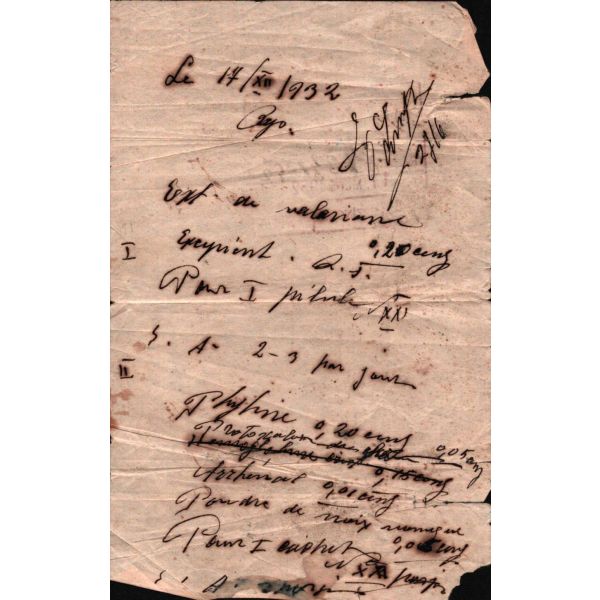 Le 17/XII/1932
Rp.
2716
Ext. de valeriane
0,20 cng
I
Excipient. Q. S.
Pour I pilule
N XX
S. A. 2-3 par jour
II
Phytine 0,20 cng
Protoxalate de 0,05 cng
0,15 cng
Arrhenal 0,01 cng
Poudre de noix vomique
0,05 cng
Pour I cachet
N XX
S. A.